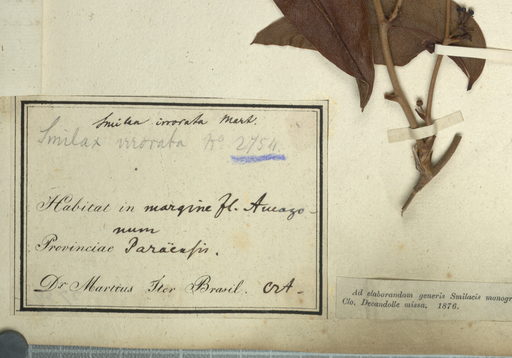 Smilax irrorata Mart.
Smilax irrorata No 2754.
Habitat in margine fl. Amazo-
num
Provinciae Paräensis.
Dr. Martius Iter Brasil. Oct.
Ad elaborandam generis Smilacis monogr
Clo. Decandolle missa. 1876.